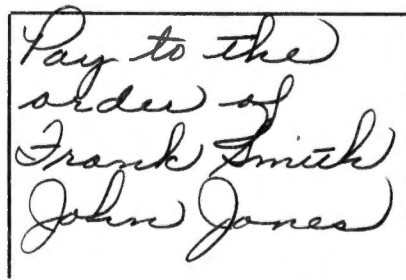 Pay to the
order of
Frank Smith
John Jones